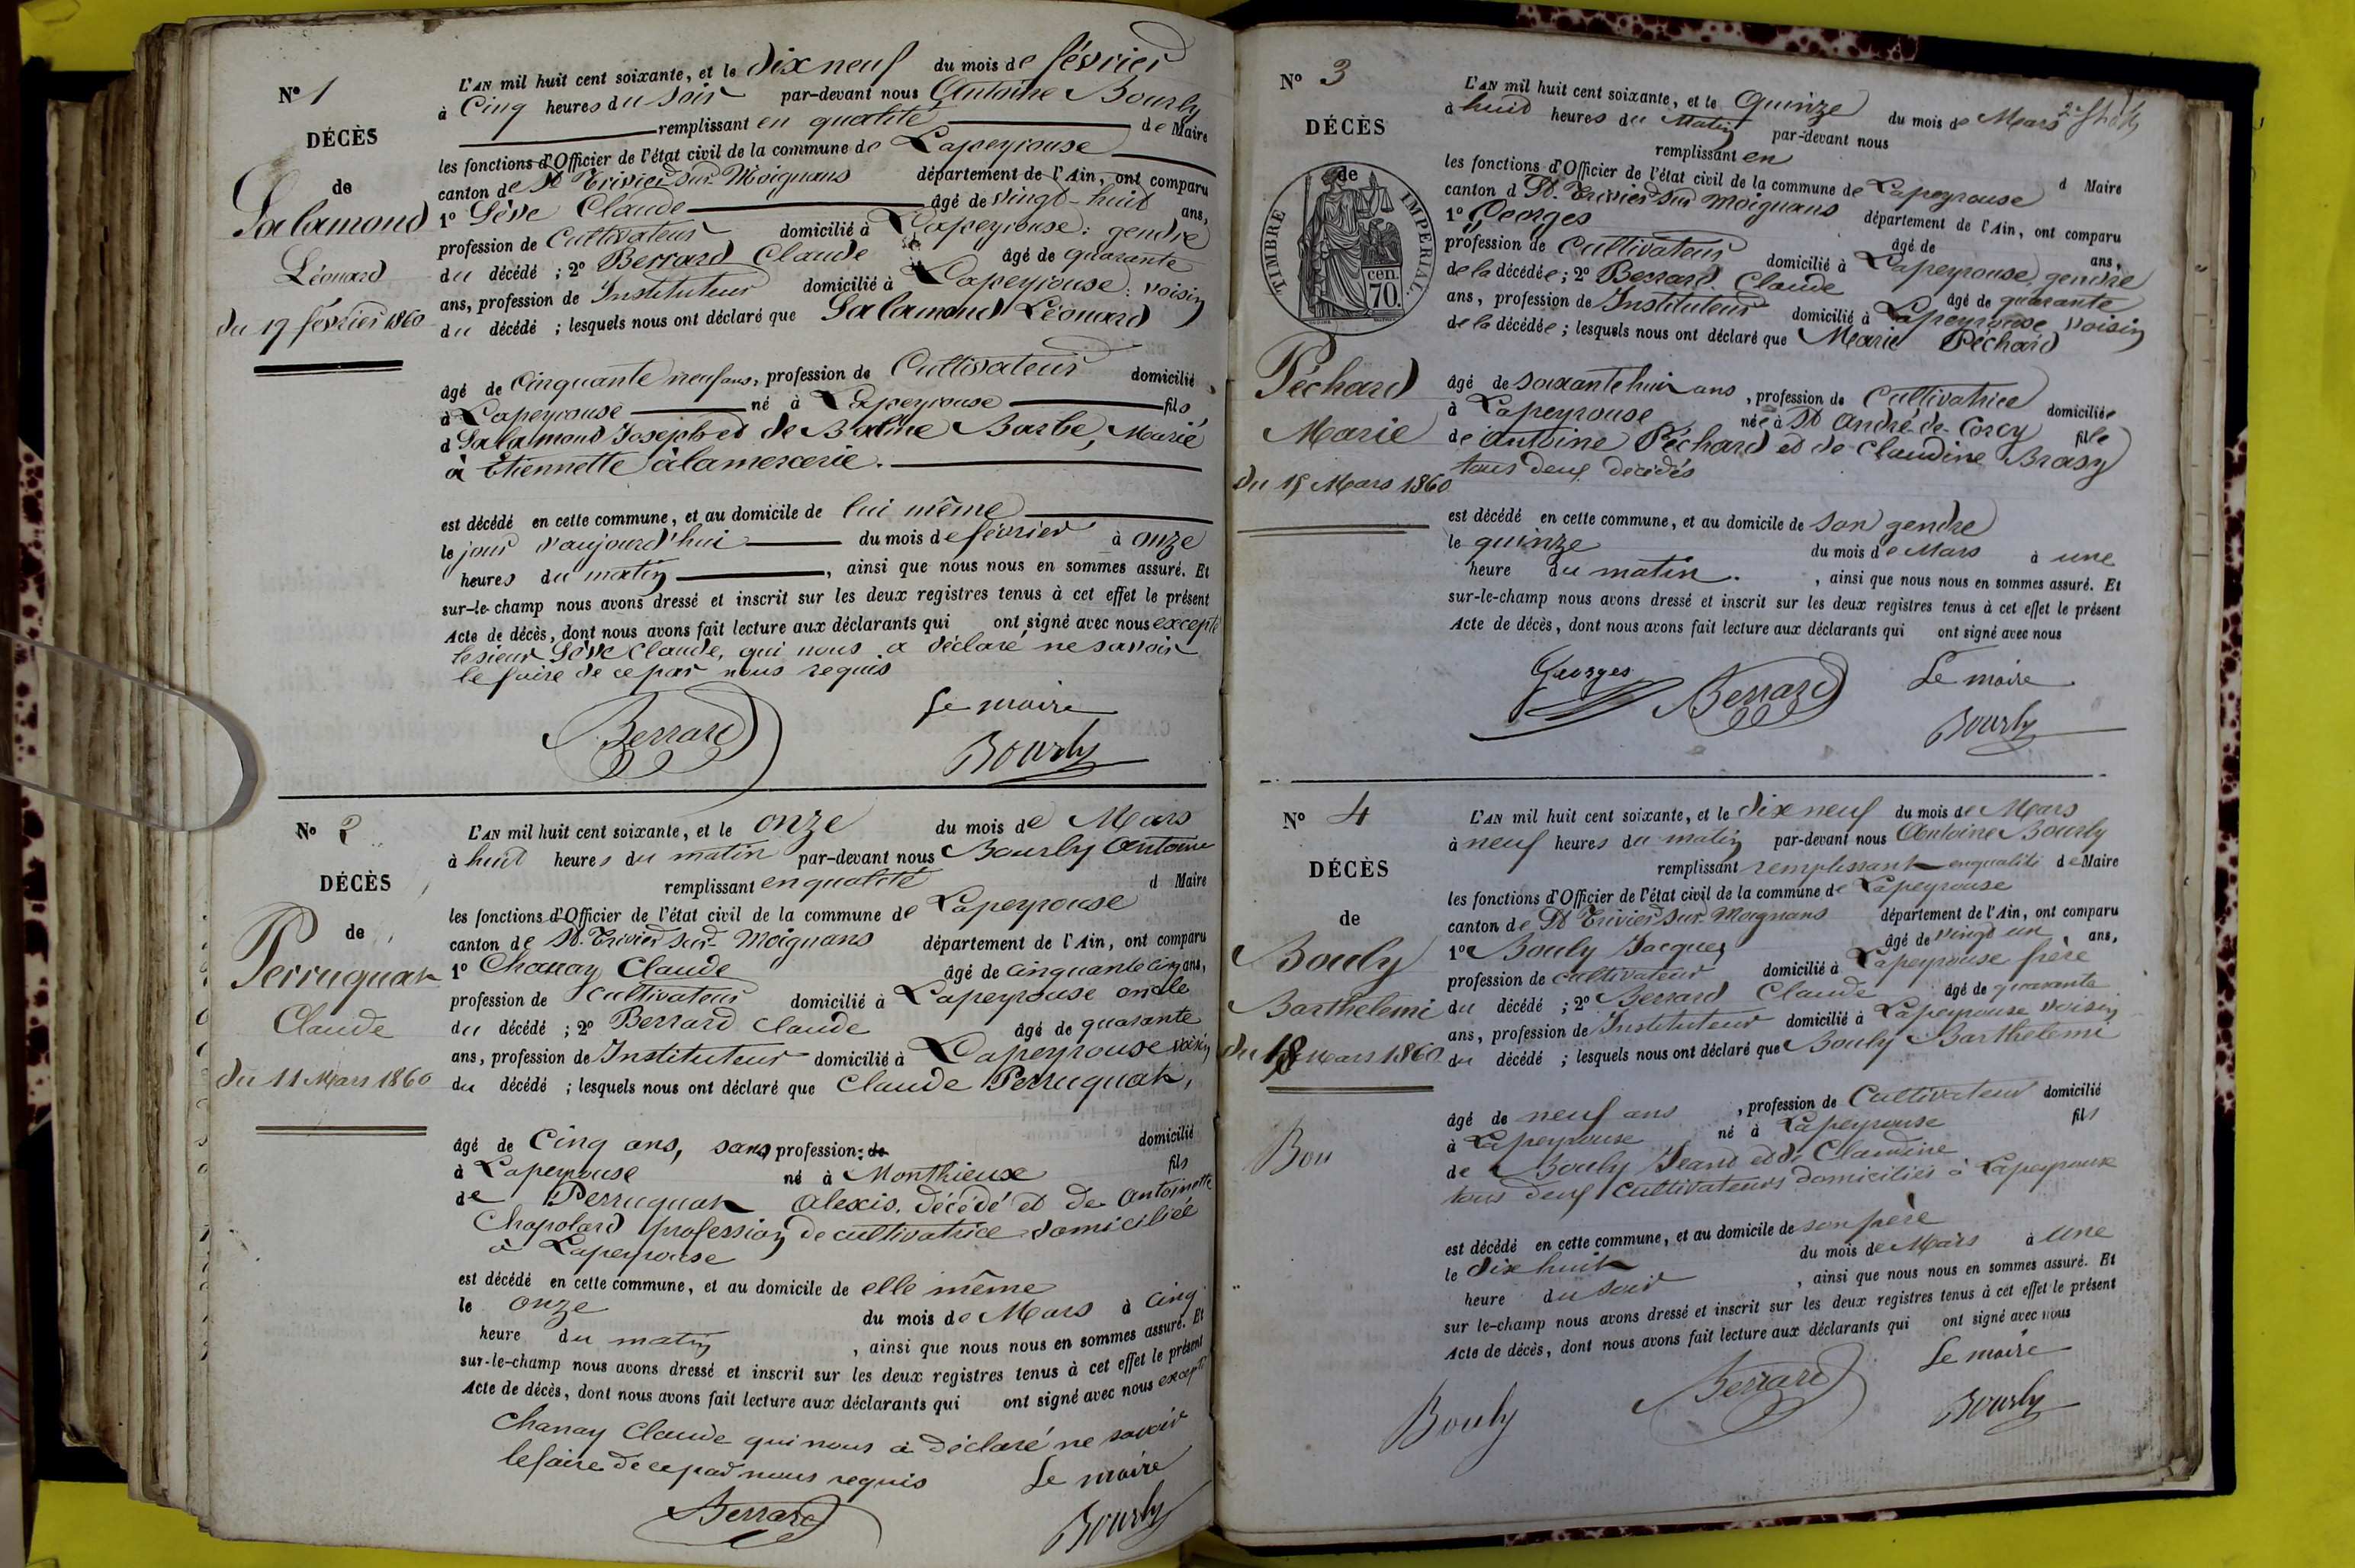 N° 1
DÉCÈS
de
Salamond
Léonard
du 19 février 1860
L'AN mil huit cent soixante, et le dix neuf du mois de février
à Cinq heures du soir par-devant nous Antoine Bourly
remplissant en qualité de Maire
les fonctions d'Officier de l'état civil de la commune de Lapeyrouse
canton de St Trivier sur Moignans département de l'Ain, ont comparu
1° Sève Claude âgé de vingt-huit ans,
profession de Cultivateur domicilié à Lapeyrouse : gendre
du décédé ; 2° Berrard Claude âgé de quarante
ans, profession de Instituteur domicilié à Lapeyrouse : voisin
du décédé ; lesquels nous ont déclaré que Salamond Léonard
âgé de Cinquante neuf ans, profession de Cultivateur domicilié
à Lapeyrouse né à Lapeyrouse fils
d Salamond Joseph et de Balme Barbe, Marié
à Etiennette àlamercerie.
est décédé en cette commune, et au domicile de lui même
le jour d'aujourd'hui du mois de février à onze
heures du matin, ainsi que nous nous en sommes assuré. Et
sur-le-champ nous avons dressé et inscrit sur les deux registres tenus à cet effet le présent
Acte de décès, dont nous avons fait lecture aux déclarants qui ont signé avec nous excepté
le sieur Sève Claude, qui nous a déclaré ne savoir
le faire de ce par nous requis
Le maire
Berrard Bourly
N° 2
DÉCÈS
de
Perruquat
Claude
du 11 Mars 1860
L'AN mil huit cent soixante, et le onze du mois de Mars
à huit heures du matin par-devant nous Bourly Antoine
remplissant en qualité d Maire
les fonctions d'Officier de l'état civil de la commune de Lapeyrouse
canton de St. Trivier sur Moignans département de l'Ain, ont comparu
1° Chanay Claude âgé de cinquante cinq ans,
profession de cultivateur domicilié à Lapeyrouse oncle
du décédé ; 2° Berrard Claude âgé de quarante
ans, profession de Instituteur domicilié à Lapeyrouse voisin
du décédé ; lesquels nous ont déclaré que Claude Perruquat,
âgé de Cinq ans, sans profession : de domicilié
à Lapeyrouse né à Monthieux fils
de Perruquat Alexis, décédé et de Antoinette
Chapolard profession de cultivatrice domiciliée
à Lapeyrouse
est décédé en cette commune, et au domicile de elle même
le onze du mois de Mars à cinq
heure du matin, ainsi que nous nous en sommes assuré. Et
sur-le-champ nous avons dressé et inscrit sur les deux registres tenus à cet effet le présent
Acte de décès, dont nous avons fait lecture aux déclarants qui ont signé avec nous excepté
Chanay Claude qui nous a déclaré ne savoir
le faire de ce par nous requis
Le maire
Berrard Bourly
N° 3
DÉCÈS
de
TIMBRE IMPERIAL
cen.
70.
Péchard
Marie
du 15 Mars 1860
L'AN mil huit cent soixante, et le Quinze du mois de Mars
à huit heures du Matin par-devant nous
remplissant en d Maire
les fonctions d'Officier de l'état civil de la commune de Lapeyrouse
canton d St. Trivier sur Moignans département de l'Ain, ont comparu
1° Georges âgé de ans,
profession de cultivateur domicilié à Lapeyrouse, gendre
de la décédée ; 2° Berrard Claude âgé de quarante
ans, profession de Instituteur domicilié à Lapeyrouse voisin
de la décédée ; lesquels nous ont déclaré que Marie Péchard
âgé de soixante huit ans, profession de Cultivatrice domiciliée
à Lapeyrouse née à St André-de-Corcy fille
de Antoine Péchard et de Claudine Brasy
tous deux décédés
est décédé en cette commune, et au domicile de son gendre
le quinze du mois de Mars à une
heure du matin. , ainsi que nous nous en sommes assuré. Et
sur-le-champ nous avons dressé et inscrit sur les deux registres tenus à cet effet le présent
Acte de décès, dont nous avons fait lecture aux déclarants qui ont signé avec nous
Georges Berrard Le maire
Bourly
N° 4
DÉCÈS
de
Bouly
Barthelemi
du 18 Mars 1860
Bou
L'AN mil huit cent soixante, et le dix neuf du mois de Mars
à neuf heures du matin par-devant nous Antoine Bourly
remplissant remplissant en qualité de Maire
les fonctions d'Officier de l'état civil de la commune de Lapeyrouse
canton de St Trivier sur Moignans département de l'Ain, ont comparu
1° Bouly Jacques âgé de vingt un ans,
profession de cultivateur domicilié à Lapeyrouse frère
du décédé ; 2° Berrard Claude âgé de quarante
ans, profession de Instituteur domicilié à Lapeyrouse voisin
du décédé ; lesquels nous ont déclaré que Bouly Barthelemi
âgé de neuf ans, profession de Cultivateur domicilié
à Lapeyrouse né à Lapeyrouse fils
de Bouly Jean et de Claudine
tous deux cultivateurs domiciliés à Lapeyrouse
est décédé en cette commune, et au domicile de son père
le dix huit du mois de Mars à une
heure du soir, ainsi que nous nous en sommes assuré. Et
sur le-champ nous avons dressé et inscrit sur les deux registres tenus à cet effet le présent
Acte de décès, dont nous avons fait lecture aux déclarants qui ont signé avec nous
Le maire
Bouly Berrard Bourly